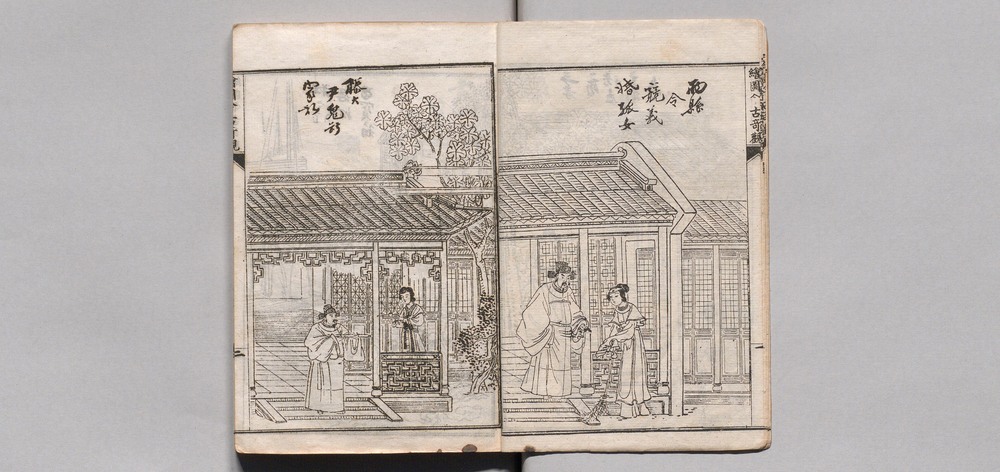 繪圖今古奇觀
兩縣
令
競義
婚孤女
滕大
尹鬼斷
家私